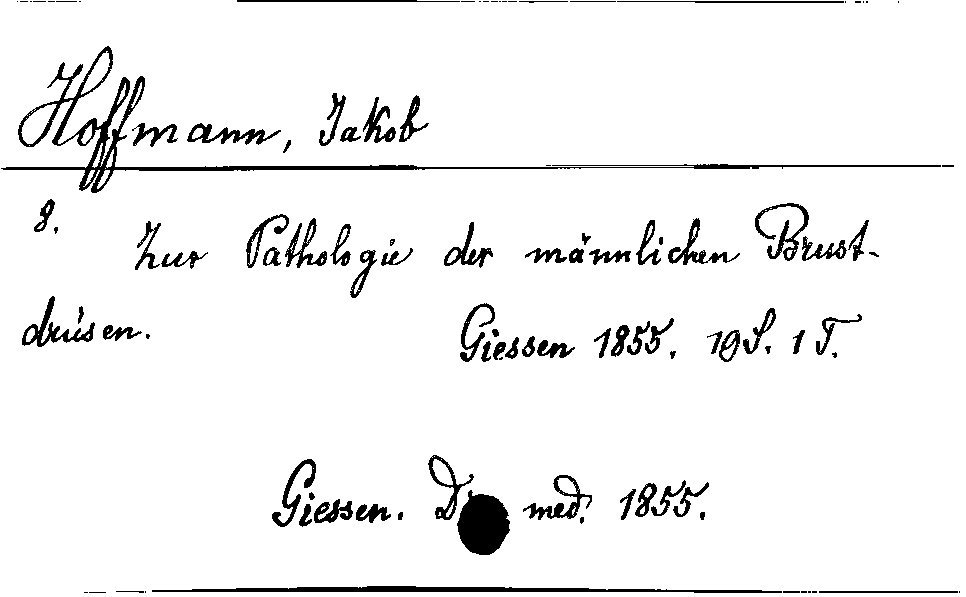 Hoffmann, Jakob
8. Zur Pathologie der männlichen Brust-
drüsen. Giessen 1855. 19 S. 1 T.
Giessen. med. 1855.